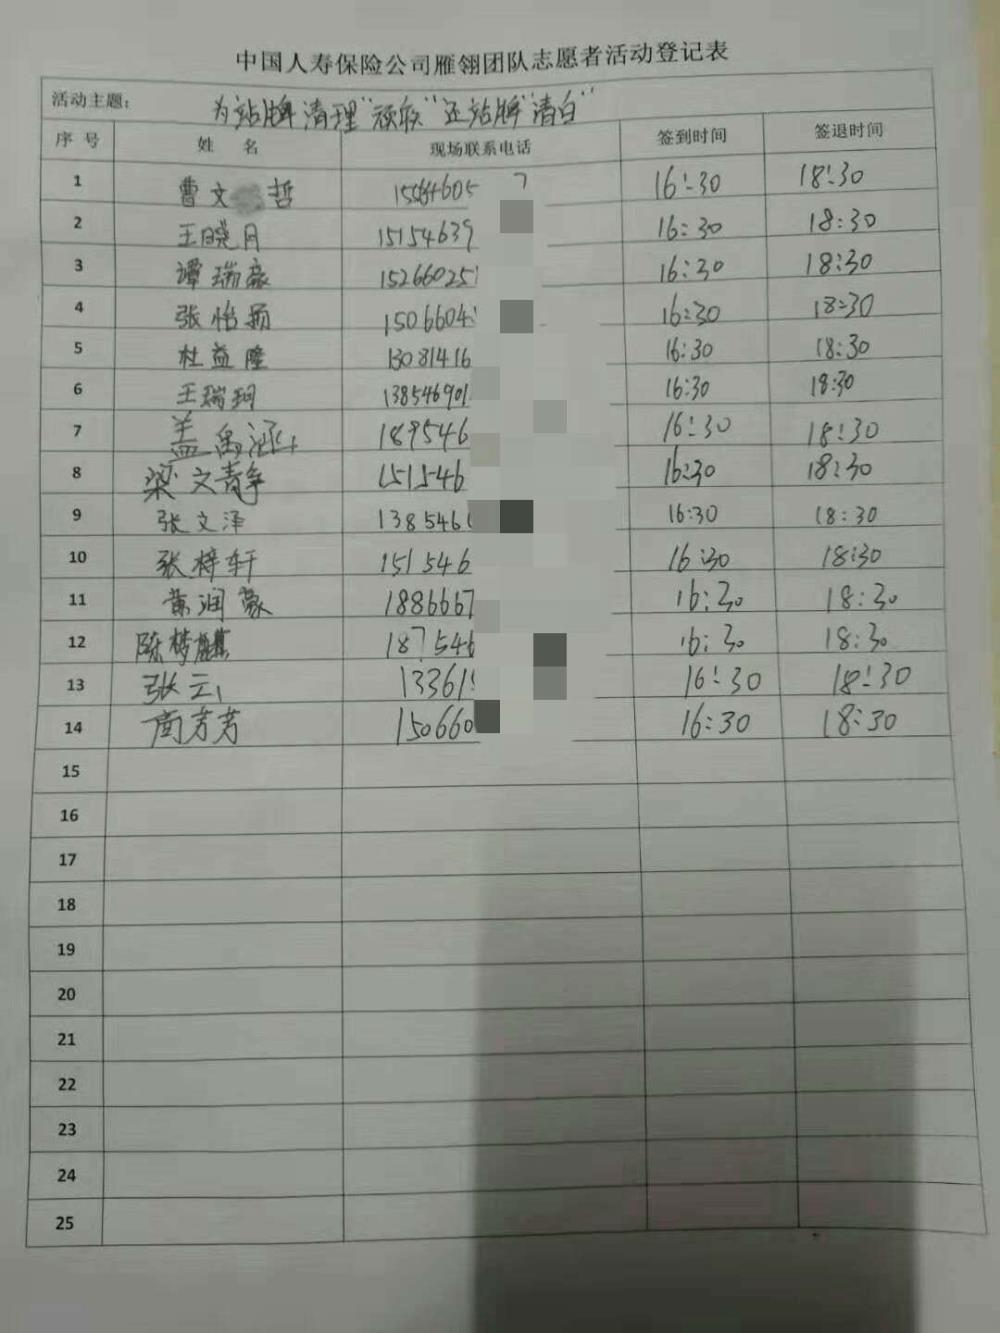 中国人寿保险公司雁翎团队志愿者活动登记表
活动主题： 为站牌清理"顽疾"还站牌"清白"
序号 姓名 现场联系电话 签到时间 签退时间
1 曹文 哲 7 16:30 18:30
2 王晓月 15154639 16:30 18:30
3 谭瑞豪 15266025 16:30 18:30
4 张怡 1506604 16:30 18:30
5 杜益隆 13081416 16:30 18:30
6 王瑞珂 138546901 16:30 18:30
7 盖禹涵 189546 16:30 18:30
8 梁文静 151546 16:30 18:30
9 张文泽 138546 16:30 18:30
10 张梓轩 151546 16:30 18:30
11 黄润蒙 1886667 16:30 18:30
12 陈梦麒 187546 16:30 18:30
13 张云 13361 16:30 18:30
14 商芳芳 150660 16:30 18:30
15
16
17
18
19
20
21
22
23
24
25